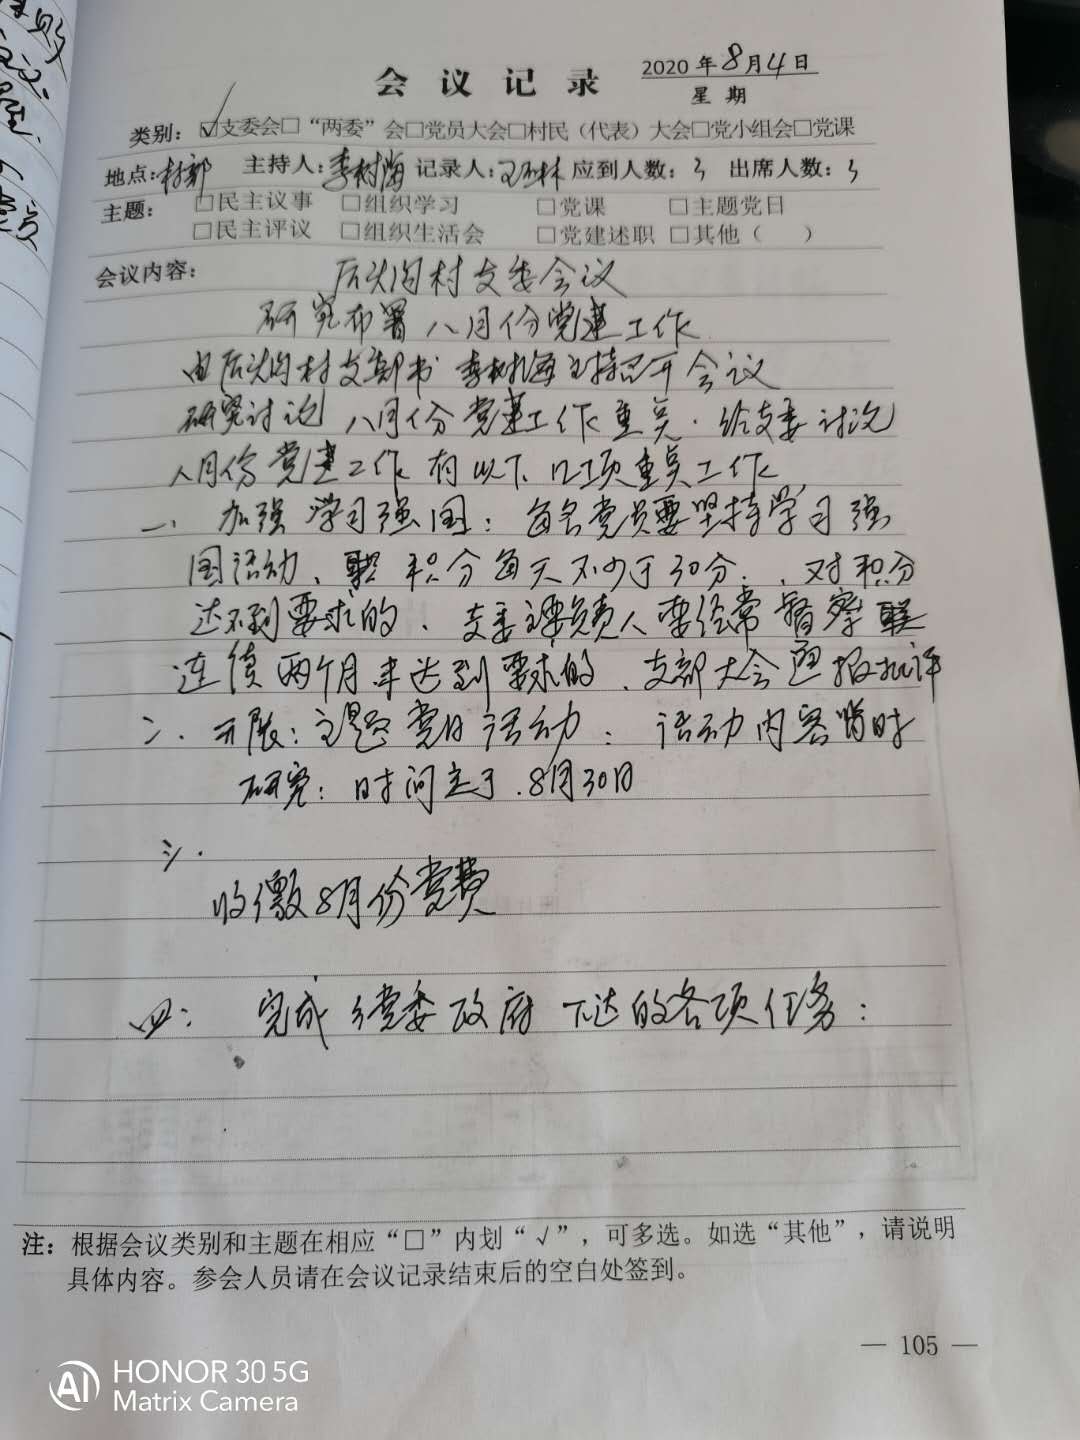 会议记录 2020年8月4日
星期
类别：☑支委会□“两委”会□党员大会□村民（代表）大会□党小组会□党课
地点：村部 主持人：李树海 记录人：王林 应到人数：3 出席人数：3
主题：□民主议事 □组织学习 □党课 □主题党日
□民主评议 □组织生活会 □党建述职 □其他（ ）
会议内容：后头沟村支委会议
研究布署八月份党建工作
由后头沟村支部书李树海主持召开会议
研究讨论八月份党建工作重点．给支委讨论
八月份党建工作有以下几项重点工作
一、加强学习强国：每名党员要坚持学习强
国活动、积分每天不少于30分．、对积分
达不到要求的、支委主要负责人要经常督察
连续两个月未达到要求的、支部大会通报批评
二．开展：主题党日活动：活动内容临时
研究：时间定于．8月30日
三．
收缴8月份党费
四：完成乡党委政府下达的各项任务：
注：根据会议类别和主题在相应“□”内划“√”，可多选。如选“其他”，请说明
具体内容。参会人员请在会议记录结束后的空白处签到。
— 105 —
AI HONOR 30 5G
Matrix Camera